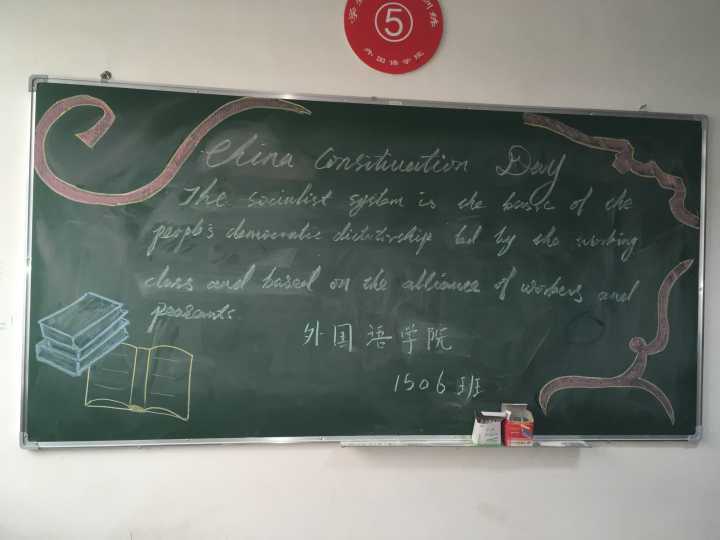 ⑤
外国语学院
China Consituation Day
The socialist system is the basic of the
people's democratic dictatorship led by the working
class and based on the alliance of workers and
peasants.
外国语学院
1506班